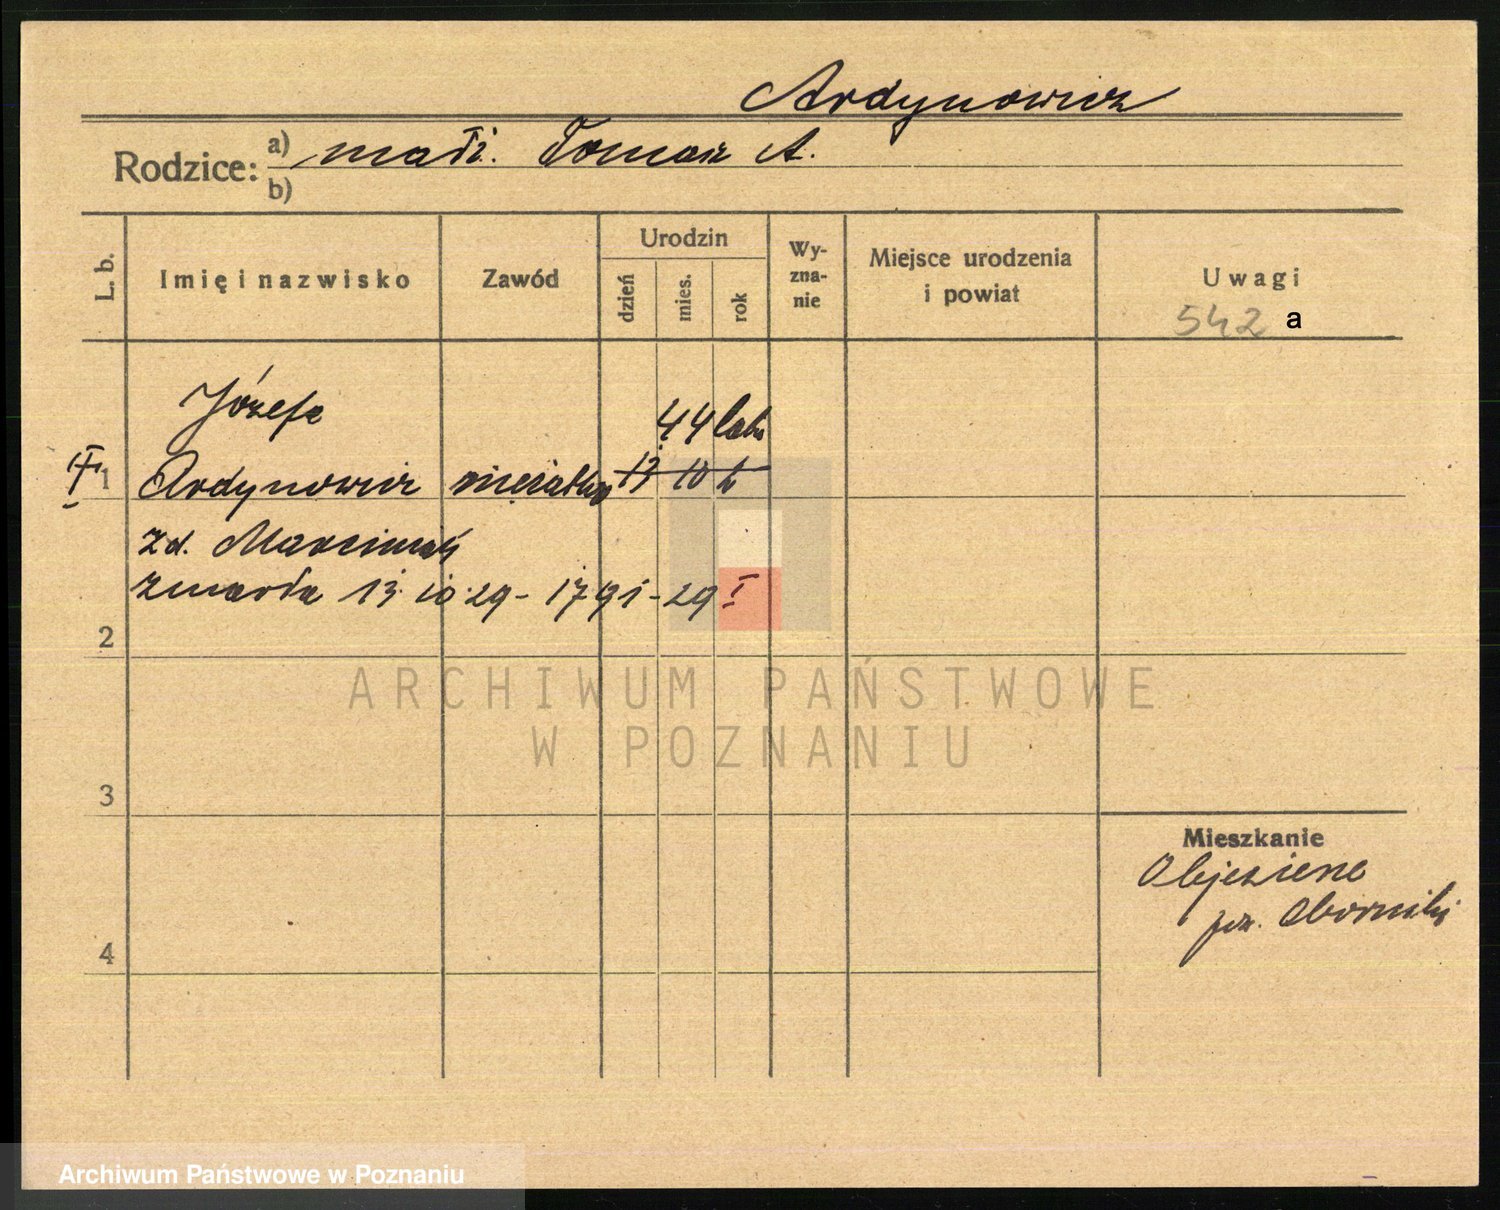 Ardynowicz
Rodzice: a) małż. Tomasz A.
b)
L. b.
Imię i nazwisko
Zawód
Urodzin
dzień
mies.
rok
Wy-
zna-
nie
Miejsce urodzenia
i powiat
Uwagi
542 a
Józefa
44 lata
1 Ardynowicz mężatka 13 10
zd. Marciniak
zmarła 13.10.29 - 1791-29 I
2
3
4
Mieszkanie
Objezierze
pow. Oborniki
ARCHIWUM PAŃSTWOWE
W POZNANIU
Archiwum Państwowe w Poznaniu